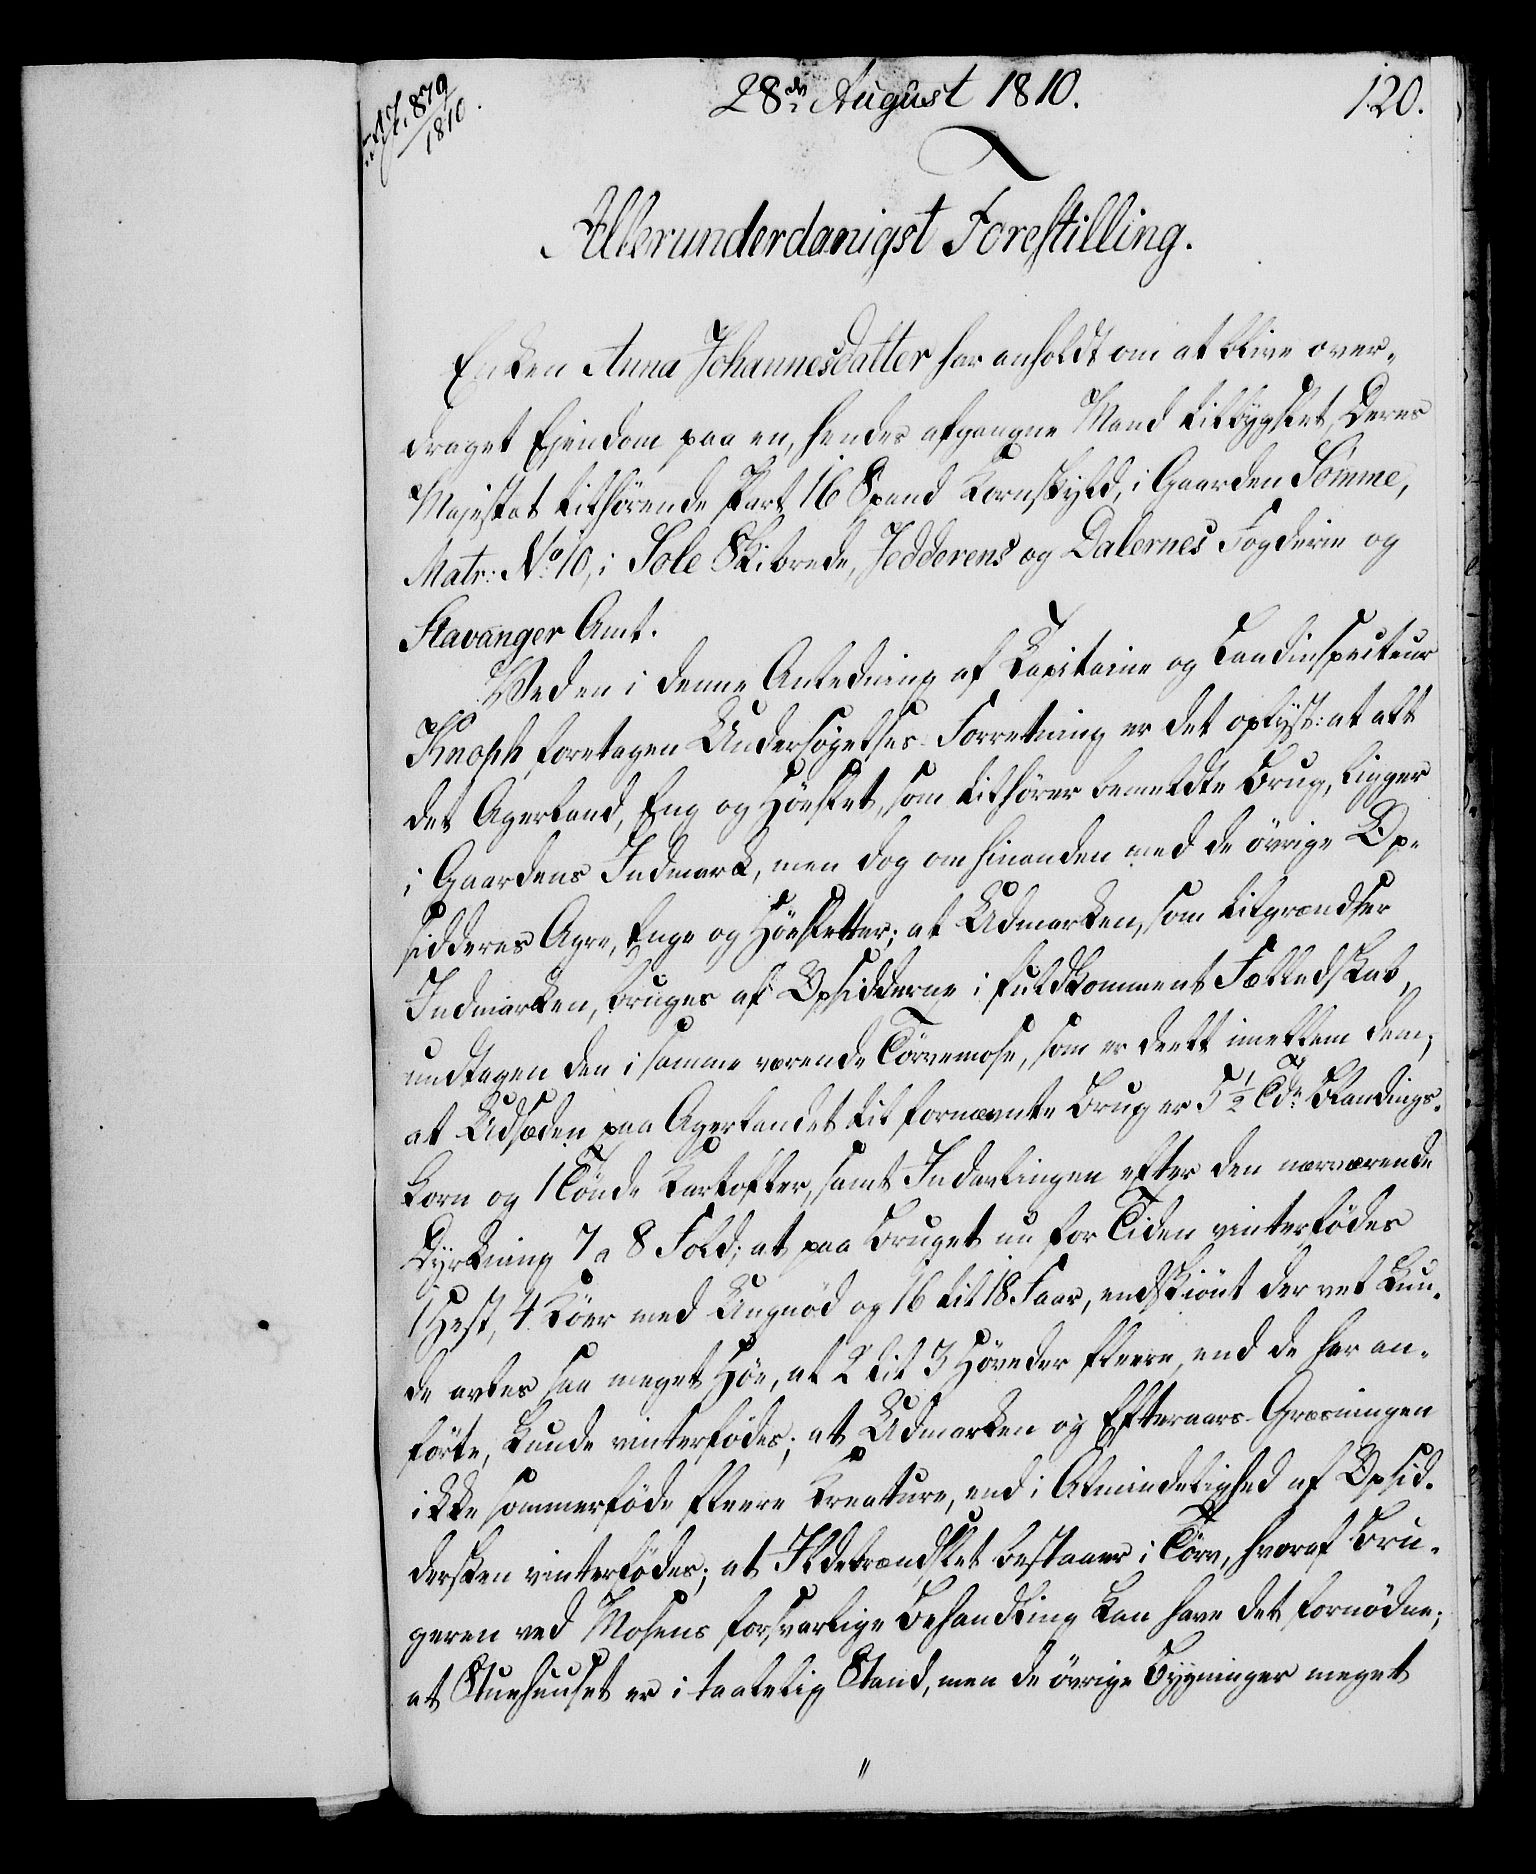 N. J. 879
1810.
28de August 1810.
120.
Allerunderdanigst Forestilling.
Enken Anna Johannesdatter har anholdt om at blive over-
draget Ejendom paa en, hendes afgangne Mand tilbygslet, Deres
Majestæt tilhörende Part, 16 Spand Kornskyld, i Gaarden Sömme,
Matr: No 10, i Sole Skibrede, Jedderens og Dalernes Fogderie og
Stavanger Amt.
Ved en i denne Anledning af Kapitaine og Landinspecteur
Knoph foretagen Undersøgelses-Forretning er det oplyst: at alt
det Agerland, Eng og Höeslet, som tilhører bemeldte Brug, ligger
i Gaardens Indmark, men dog om hinanden med de övrige Op-
sidderes Agre, Enge og Höesletter; at Udmarken, som tilgrændser
Indmarken, bruges af Opsidderne i fuldkomment Fælledskab,
undtagen den i samme værende Törvemose, som er deelt imellem dem;
at Udsæden paa Agerlandet til fornævnte Brug er 5½ Tdr Blandings-
korn og 1 Tönde Kartofler, samt Indavlingen efter den nærværende
Dyrkning 7 a 8 Fold; at paa Bruget nu for Tiden vinterfödes
1 Hest, 4 Köer med Ungnöd og 16 til 18 Faar, endskiönt der vel kun-
de avles saa meget Höe, at 2 til 3 Höveder fleere, end de her an-
förte, kunde vinterfödes; at Udmarken og Efteraars-Græsningen
ikke sommerföde fleere Kreature, end i Almindelighed af Opsid-
dersken vinterfödes; at Ildebrændslet bestaaer i Törv, hvoraf Bru-
geren ved Mosens forsvarlige Behandling kan have det fornödne;
at Stuehuuset er i taalelig Stand, men de övrige Bygninger meget